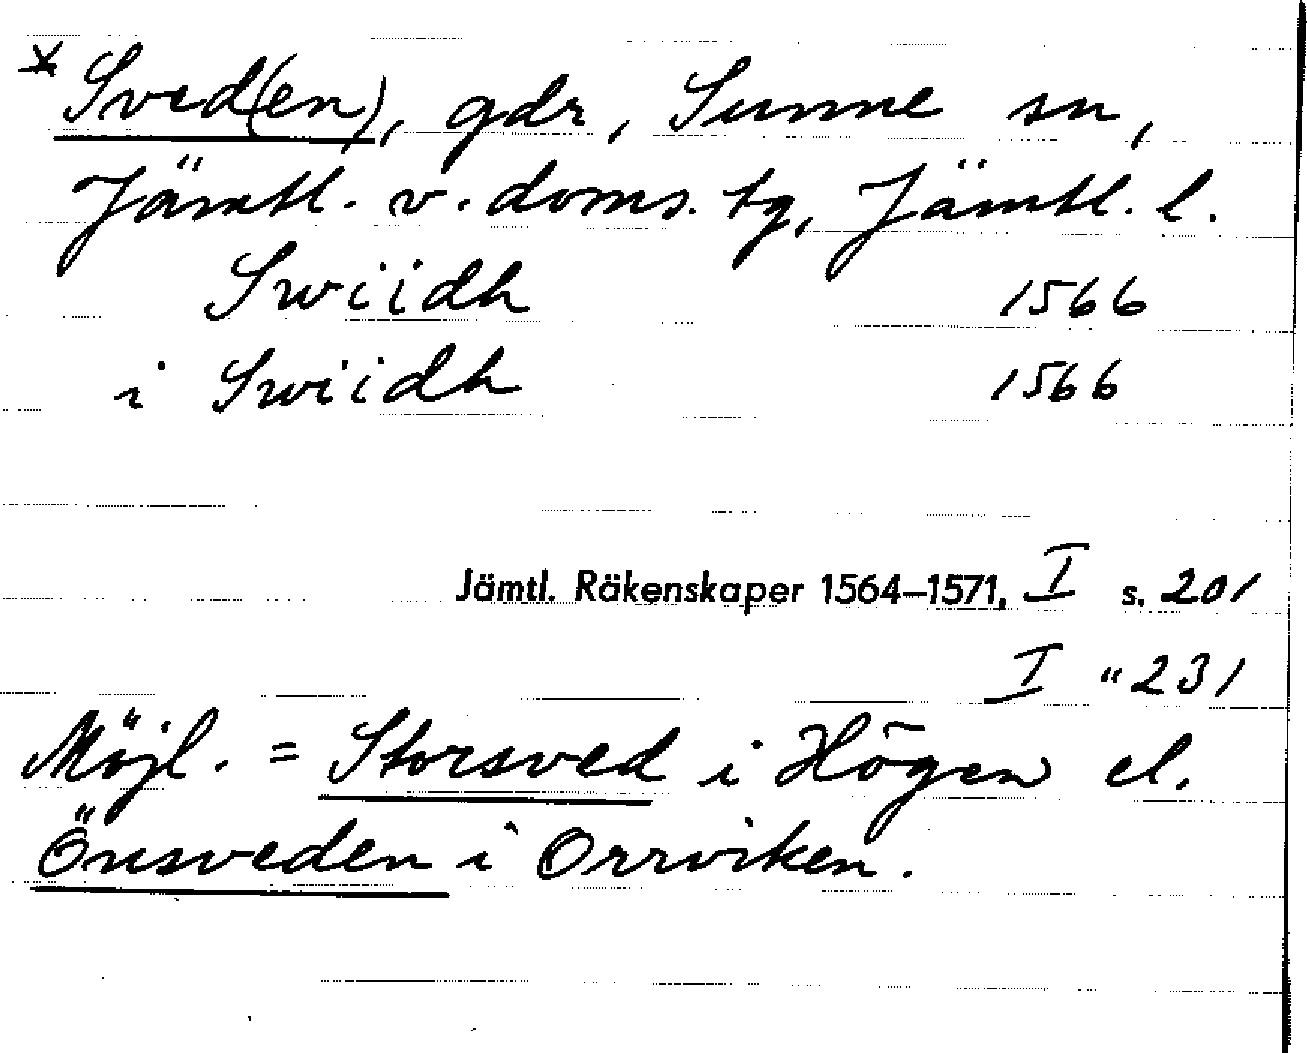 * Sved(en), gdr, Sunne sn,
Jämtl. v. doms. tg, Jämtl. l.
Swiidh 1566
i Swiidh 1566
Jämtl. Räkenskaper 1564–1571, I s. 201
I " 231
Möjl. = Storsved i Högen el.
Önsveden i Orrviken.